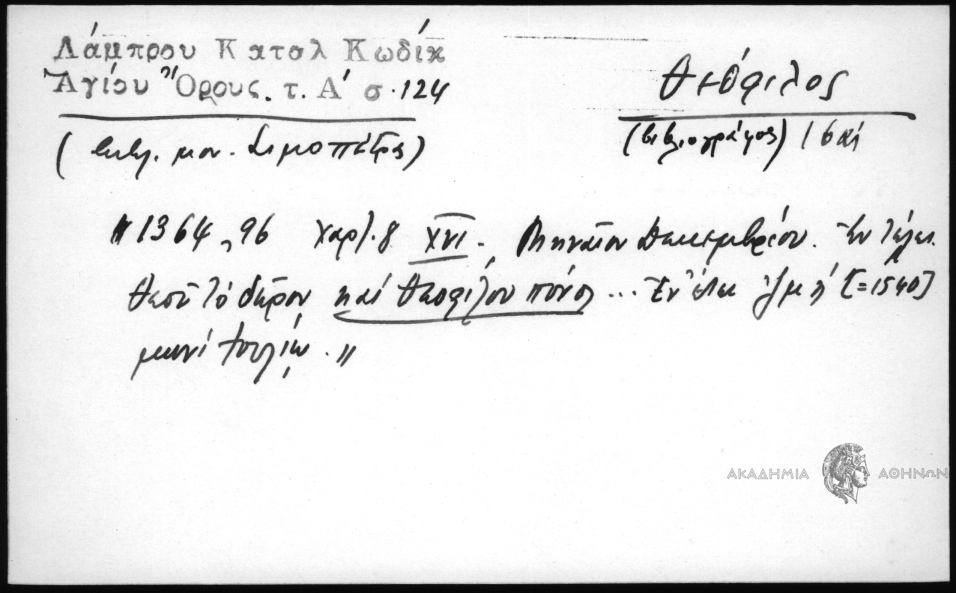 Λάμπρου Κατολ Κωδίκ
Ἁγίου Ὄρους. τ. Α΄ σ. 124
Θεόφιλος
(βιβλ. μον. Σιμοπέτρας)
(βιβλιογράφος) 16
"1364, 96 χαρτ. 8 XVI. Μηναῖον Δεκεμβρίου. Ἐν τέλει
Θεοῦ τὸ δῶρον καὶ Θεοφίλου πόνος ... Ἐν ἔτει ͵ζμη [=1540]
μηνὶ Ἰουλίῳ."
ΑΚΑΔΗΜΙΑ ΑΘΗΝΩΝ